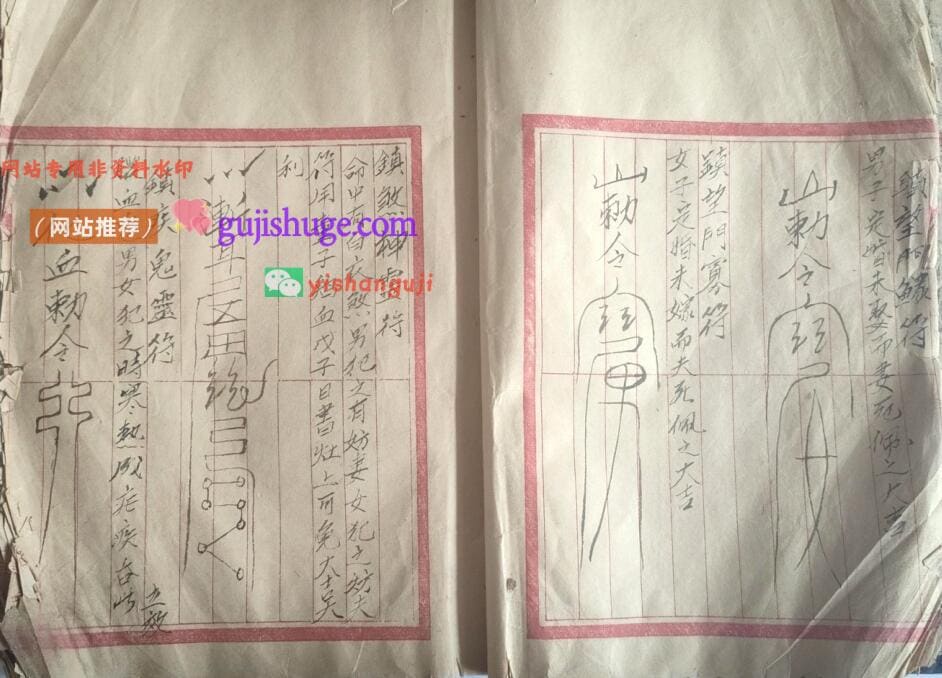 鎮望門鰥符
男子定婚未娶而妻死佩之大吉
勅令
鎮望門寡符
女子定婚未嫁而夫死佩之大吉
勅令
鎮煞神靈符
命中有白衣煞男犯之有妨妻女犯之妨夫
符用
子日書灶上可免大吉
利
鎮疾鬼靈符
血
男女犯之時寒熱成疟疾
立效
血勅令
网站专用非资料水印
(网站推荐)
gujishuge.com
yishanguji